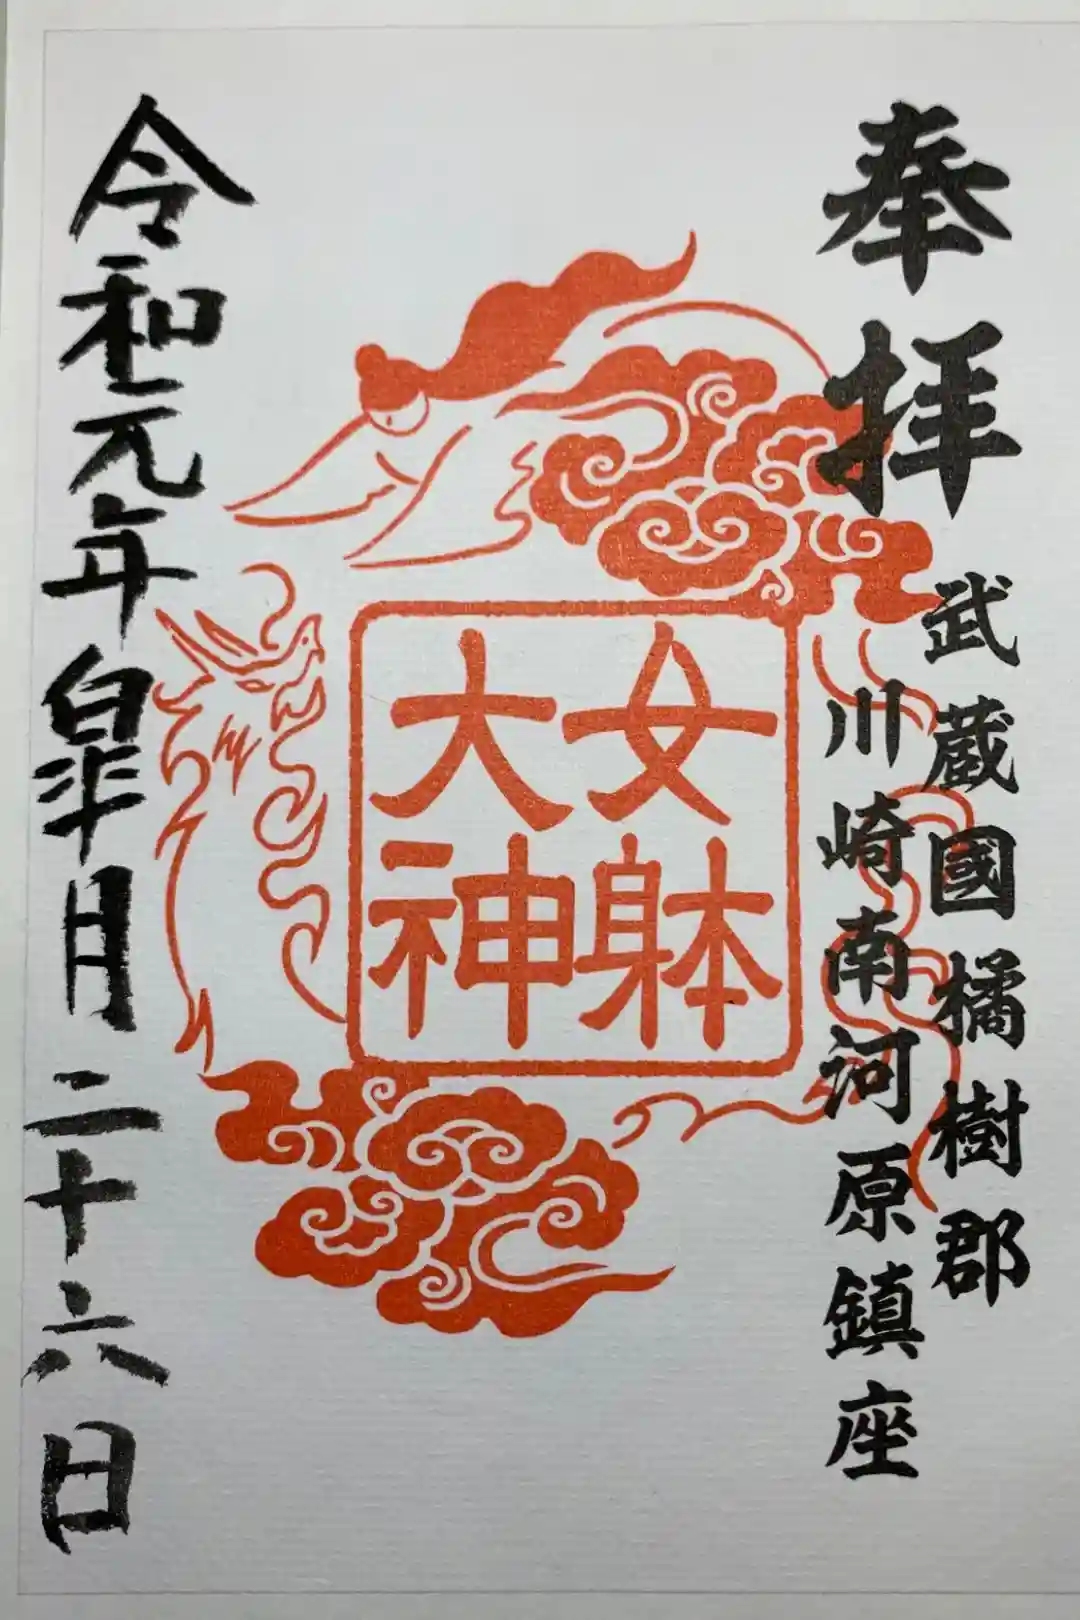 奉拝
武蔵國橘樹郡
川崎南河原鎮座
女躰
大神
令和元年皐月二十六日